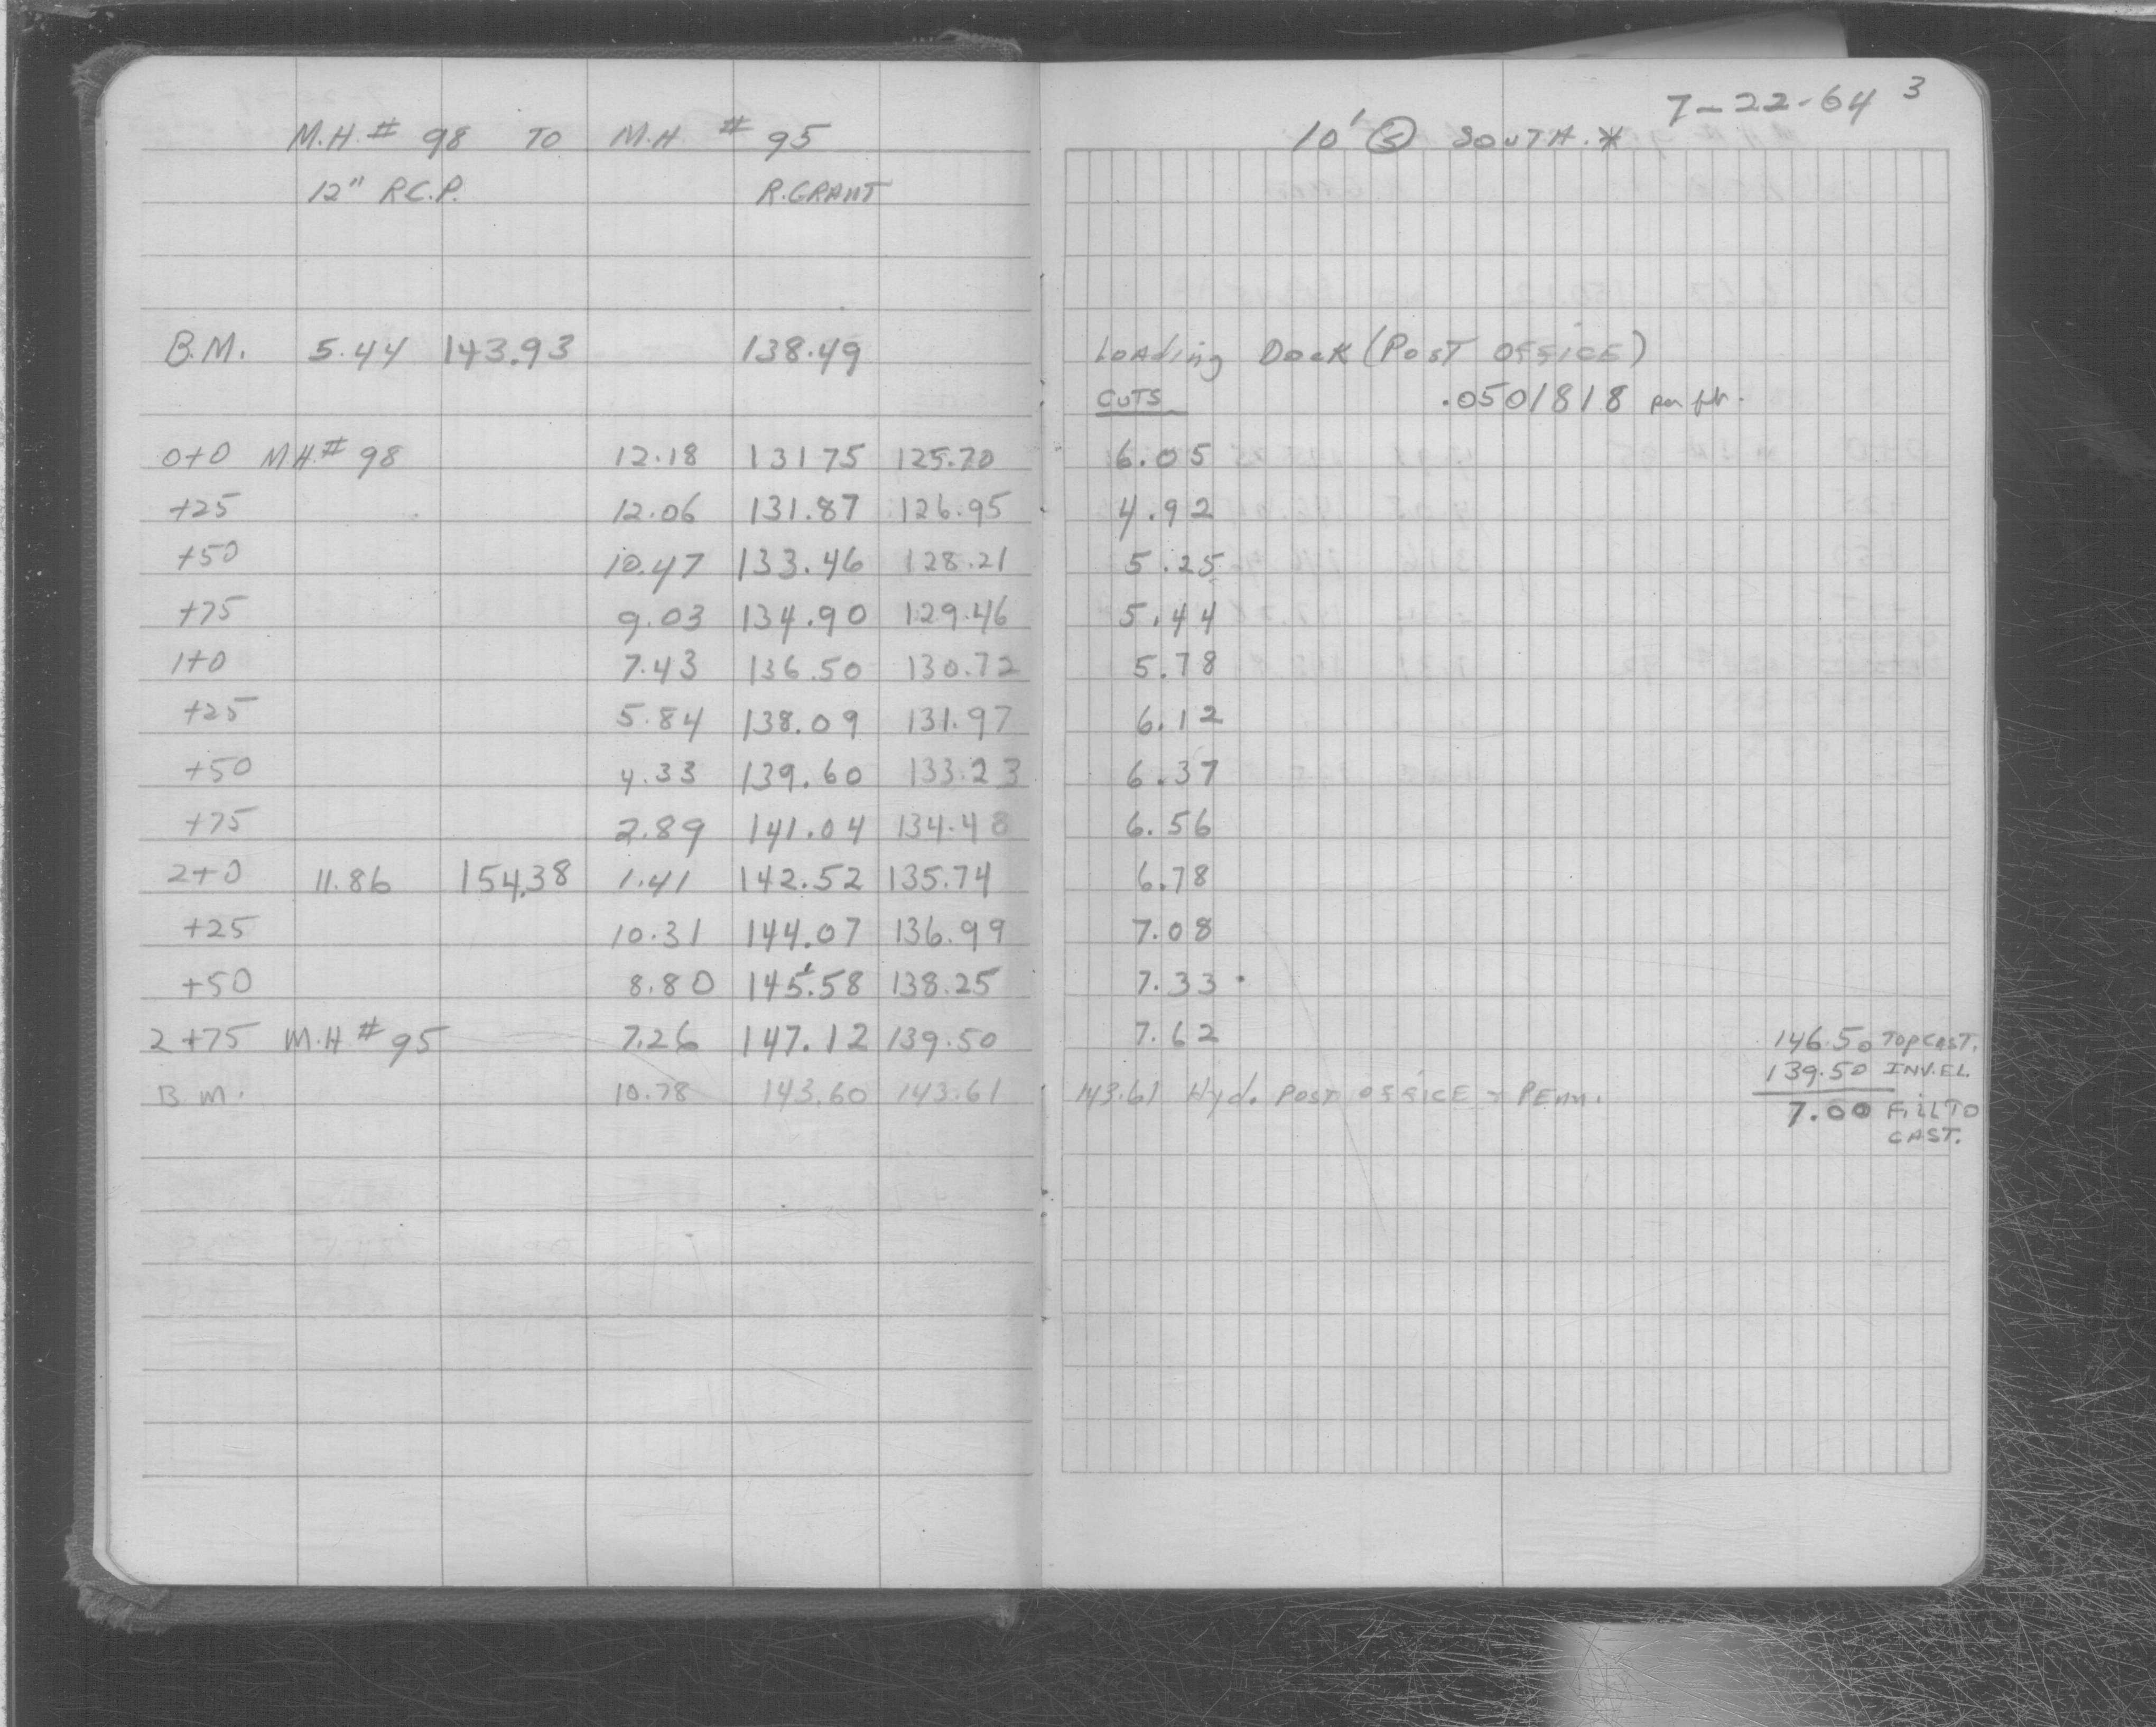 M.H. # 98 TO M.H. # 95
12" R.C.P. R.GRANT
B.M. 5.44 143.93 138.49
0+0 M.H.# 98 12.18 131 75 125.70
+25 12.06 131.87 126.95
+50 10.47 133.46 128.21
+75 9.03 134.90 129.46
1+0 7.43 136.50 130.72
+25 5.84 138.09 131.97
+50 4.33 139.60 133.23
+75 2.89 141.04 134.48
2+0 11.86 154.38 1.41 142.52 135.74
+25 10.31 144.07 136.99
+50 8.80 145.58 138.25
2+75 M.H # 95 7.26 147.12 139.50
B.M. 10.78 143.60 143.61
7-22-64 3
10' Ⓢ SOUTH.*
Loading Dock (Post OFFICE)
CUTS .0501818 per ft.
6.05
4.92
5.25
5.44
5.78
6.12
6.37
6.56
6.78
7.08
7.33
7.62
146.50 TOP CAST.
139.50 INV.EL.
143.61 Hyd. POST OFFICE - PENN.
7.00 FILL TO
CAST.